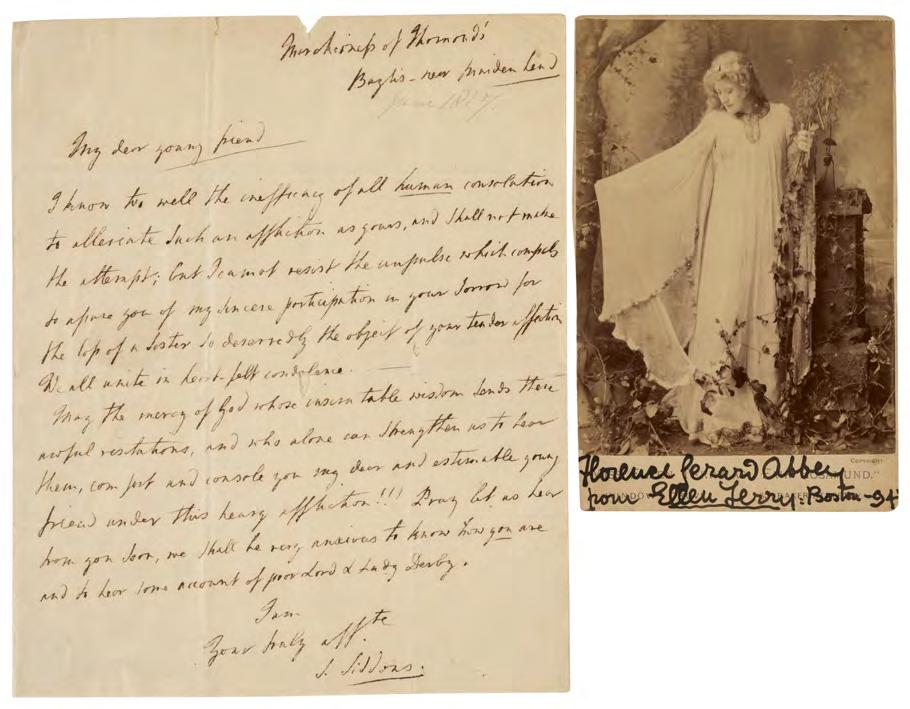 Marchioness of Thomond's
Baylis - near Maiden head
June 1817
My dear young friend
I know too well the inefficacy of all human consolation
to alleviate such an affliction as yours, and shall not make
the attempt; but I cannot resist the impulse which compels
to assure you of my sincere participation in your sorrow for
the loss of a Sister so deservedly the object of your tender affection
We all unite in heart-felt condolence.
May the mercy of God whose inscrutable wisdom sends these
awful visitations, and who alone can strengthen us to bear
them, comfort and console you my dear and estimable young
friend under this heavy affliction!!! Pray let us hear
from you soon, we shall be very anxious to know how you are
and to hear some account of poor Lord & Lady Derby.
I am
Your truly affte
S. Siddons.
COPYRIGHT
Florence Gerard Abbey
pour Ellen Terry: Boston - 94